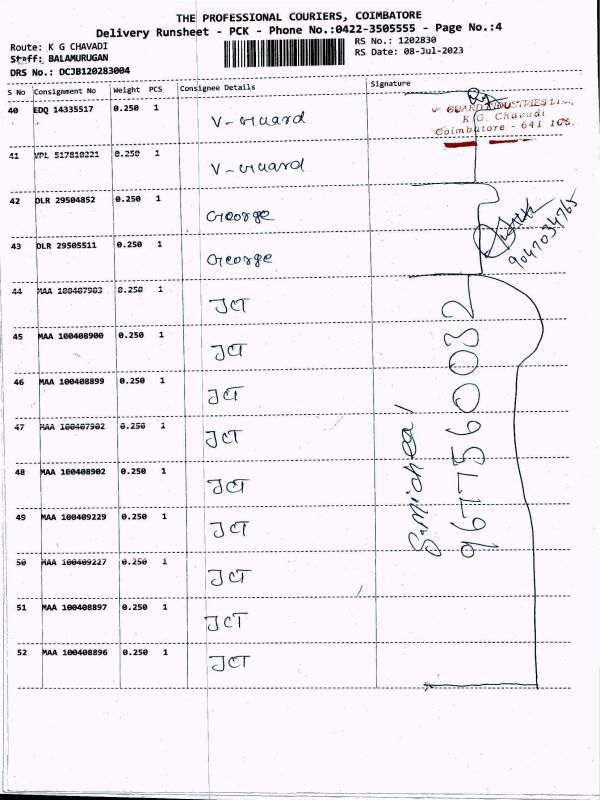 THE PROFESSIONAL COURIERS, COIMBATORE
Delivery Runsheet - PCK - Phone No.:0422-3505555 - Page No.:4
Route: K G CHAVADI RS No.: 1202830
Staff: BALAMURUGAN RS Date: 08-Jul-2023
DRS No.: DCJB120283004
S No Consignment No Weight PCS Consignee Details Signature
40 EDQ 14335517 0.250 1 V-Guard
V-GUARD INDUSTRIES LTD.,
K.G. Chavadi
Coimbatore - 641 105.
41 VPL 517810221 0.250 1 V-Guard
42 DLR 29504852 0.250 1 George
43 DLR 29505511 0.250 1 George
9047034765
44 MAA 100407903 0.250 1 JCT
45 MAA 100408900 0.250 1 JCT
46 MAA 100408899 0.250 1 JCT
47 MAA 100407902 0.250 1 JCT
48 MAA 100408902 0.250 1 JCT
49 MAA 100409229 0.250 1 JCT
50 MAA 100409227 0.250 1 JCT
51 MAA 100408897 0.250 1 JCT
52 MAA 100408896 0.250 1 JCT
S.micheal
9677560032